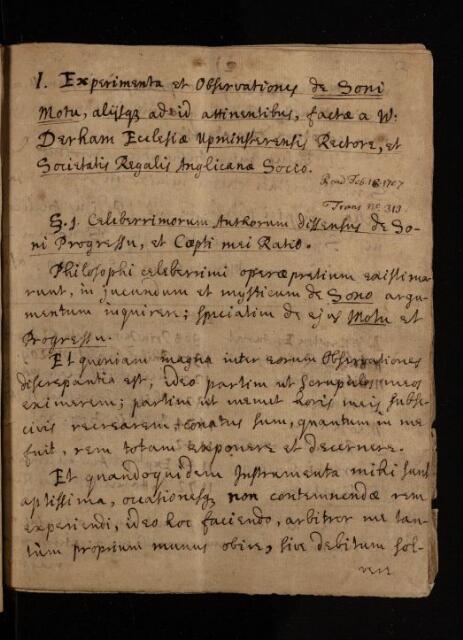 1. Experimenta et Observationes de Soni
Motu, aliisq; ad id attinentibus, factæ a W:
Derham Ecclesiæ Upminsterensis Rectore, et
Societatis Regalis Anglicanæ Socio.
Read Feb. 18 1707
Trans no 313.
§. 1. Celeberrimorum Authorum dissensus de So-
ni Progressu, et Cœpti mei Ratio.
Philosophi celeberrimi operæpretium existima-
runt, in jucundum et mysticum de Sono argu-
mentum inquirere; speciatim de ejus Motu et
Progressu.
Et quoniam magna inter eorum Observationes
discrepantia est, ideo partim ut scrupulos meos
eximerem; partim ut memet horis meis subse-
civis recrearem; conatus sum, quantum in me
fuit, rem totam exponere et decernere.
Et quandoquidem Instrumenta mihi sunt
aptissima, occationesq; non contemnendæ rem
experiendi, ideo hoc faciendo, arbitror me tan-
tùm proprium munus obire, sive debitum sol-